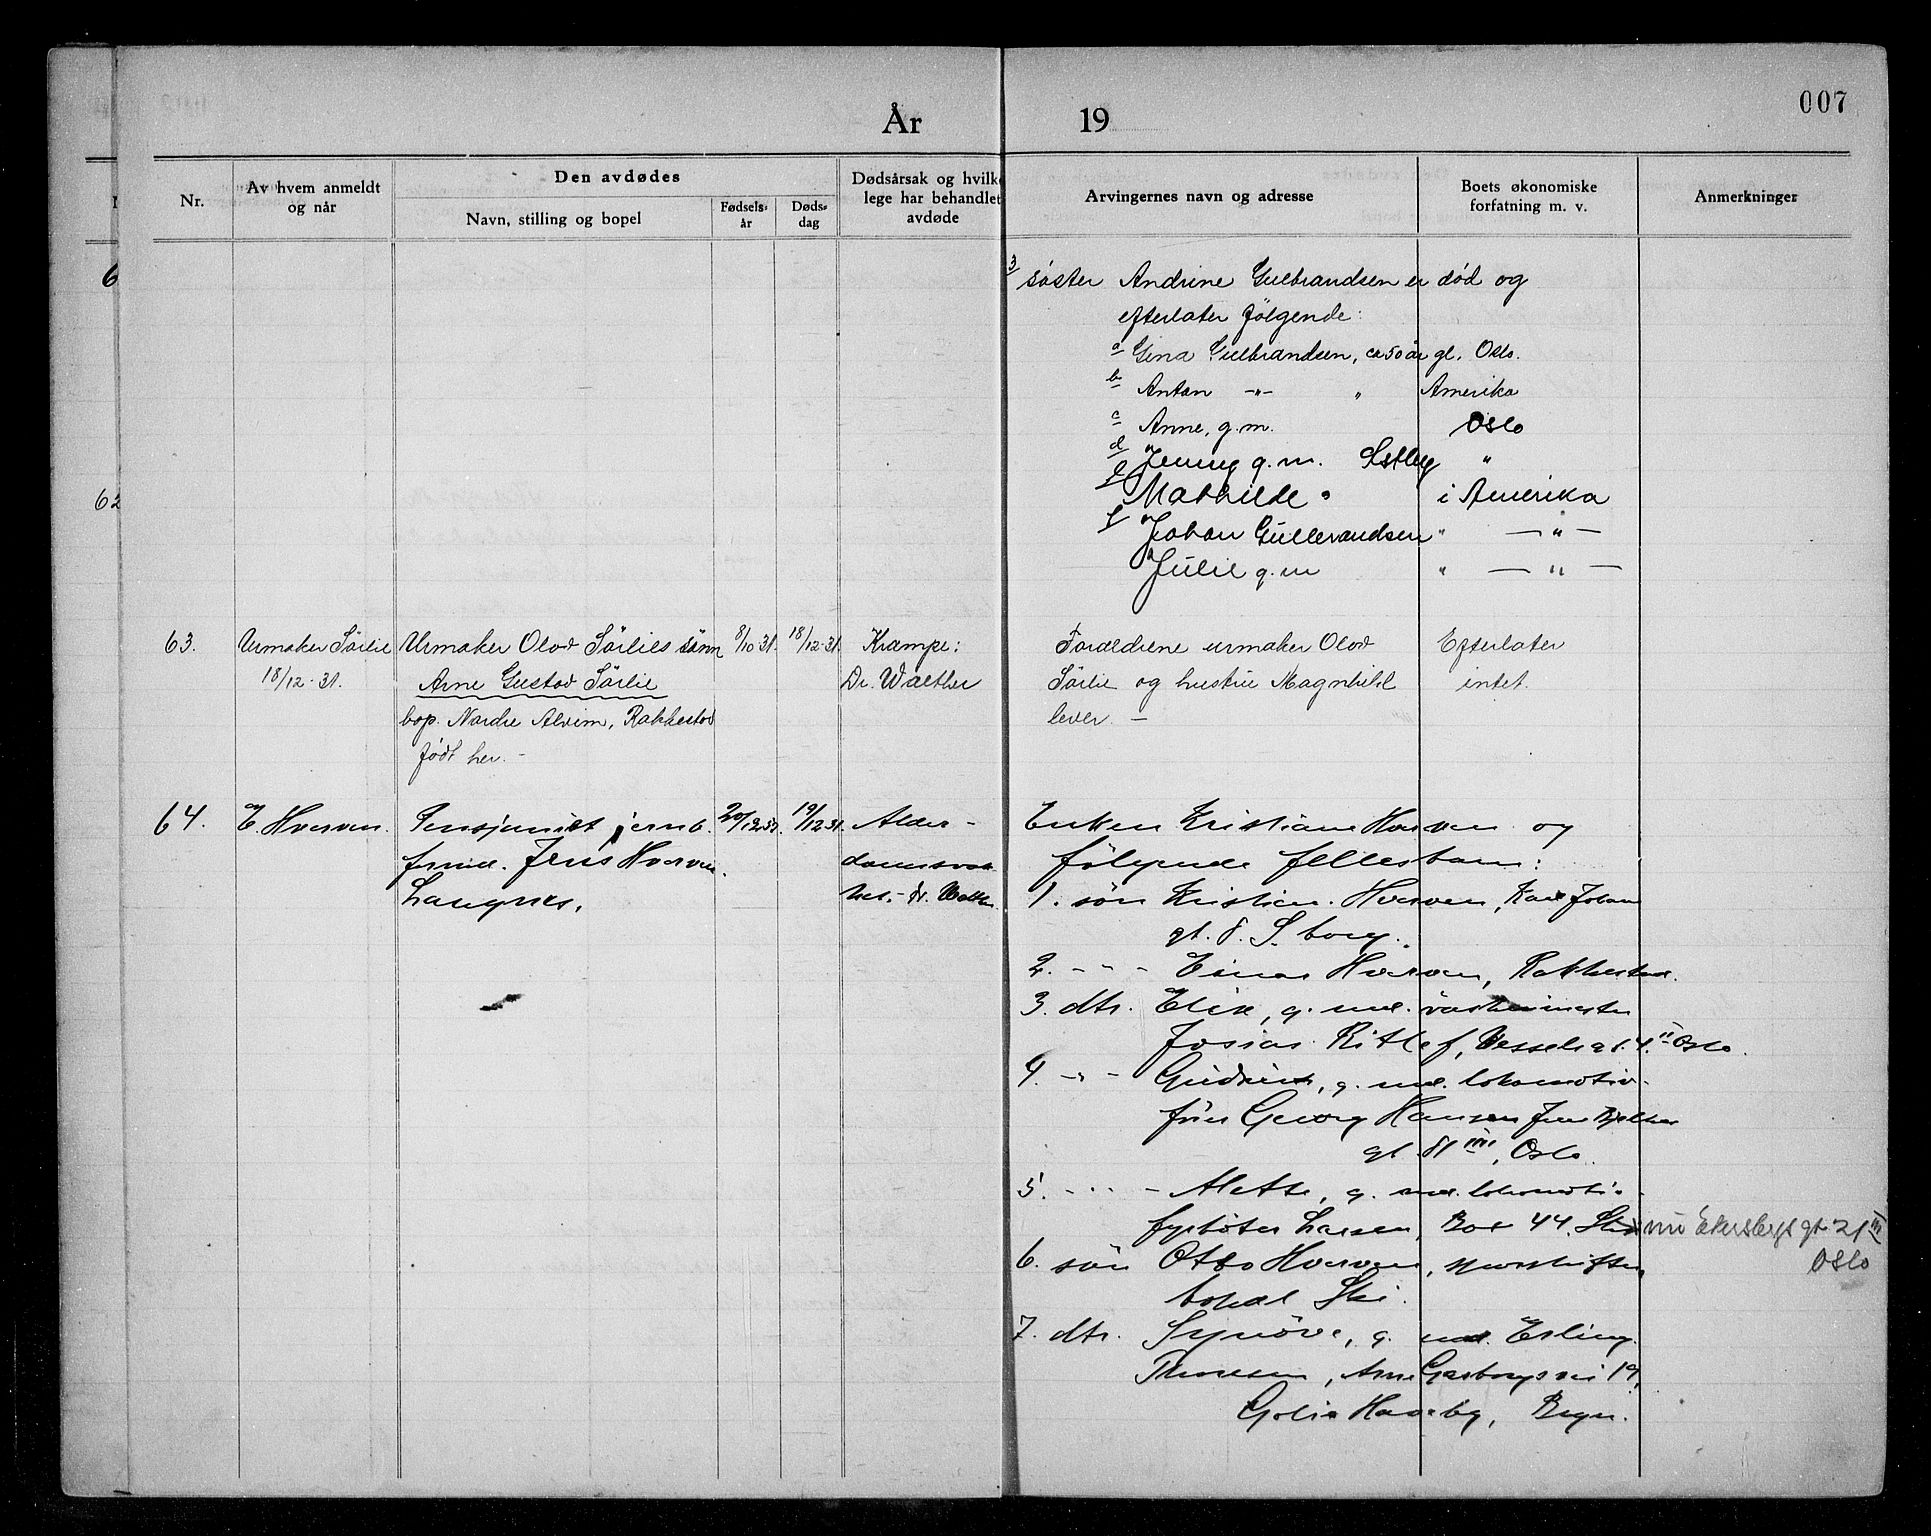 007
År 19
Nr.
Av hvem anmeldt
og når
Den avdødes
Navn, stilling og bopel
Fødsels-
år
Døds-
dag
Dødsårsak og hvilke
lege har behandlet
avdøde
Arvingernes navn og adresse
Boets økonomiske
forfatning m. v.
Anmerkninger
6
62
3
søster Andrine Gulbrandsen er død og
efterlater følgende:
a Gina Gulbrandsen, ca 50 år gl. Oslo.
b Anton -"- " Amerika
c Anne, g.m. Oslo
d Jenny g.m. "
e Mathilde " i Amerika
f Johan Gulbrandsen " — " —
Julie g.m " — " —
63.
Urmaker Sörlie
18/12-31.
Urmaker Olav Sörlies sönn
Arne Gustav Sörlie
bop. Nordre Alvim, Rakkestad
født her. -
8/10 31.
18/12-31.
Krampe:
Dr. Walther
Foreldrene urmaker Olav
Sörlie og hustru Magnhild
lever. —
Efterlater
intet.
64.
E. Hverven.
Pensjonist jernb.
Jens Hverven.
Langnes.
19/12 31.
Alder-
doms
- dr. Walther
Enken Kristiane Hverven og
følgende fellesbarn:
1. sön Kristian Hverven, Karl Johans
gt. 8. S.borg.
2. - " - Einar Hverven, Rakkestad.
3. dtr. Elise, g. med
Josias Ritlef, Wesselsgt. 4 II Oslo.
4. - " - Gudrun, g. med lokomotiv-
Georg Hansen Jens Bjelkes
gt. 81 III, Oslo.
5. - " - Alette, g. med lokomotiv-
fyrbøter Larsen, Box 44. Ski
nu Ekersbergs gt. 21 III
Oslo
6. sön Otto Hverven,
bopæl Ski.
7. dtr. Synöve, g. med Erling
Thoresen, Arne Garborgsvei 19,
Haveby,